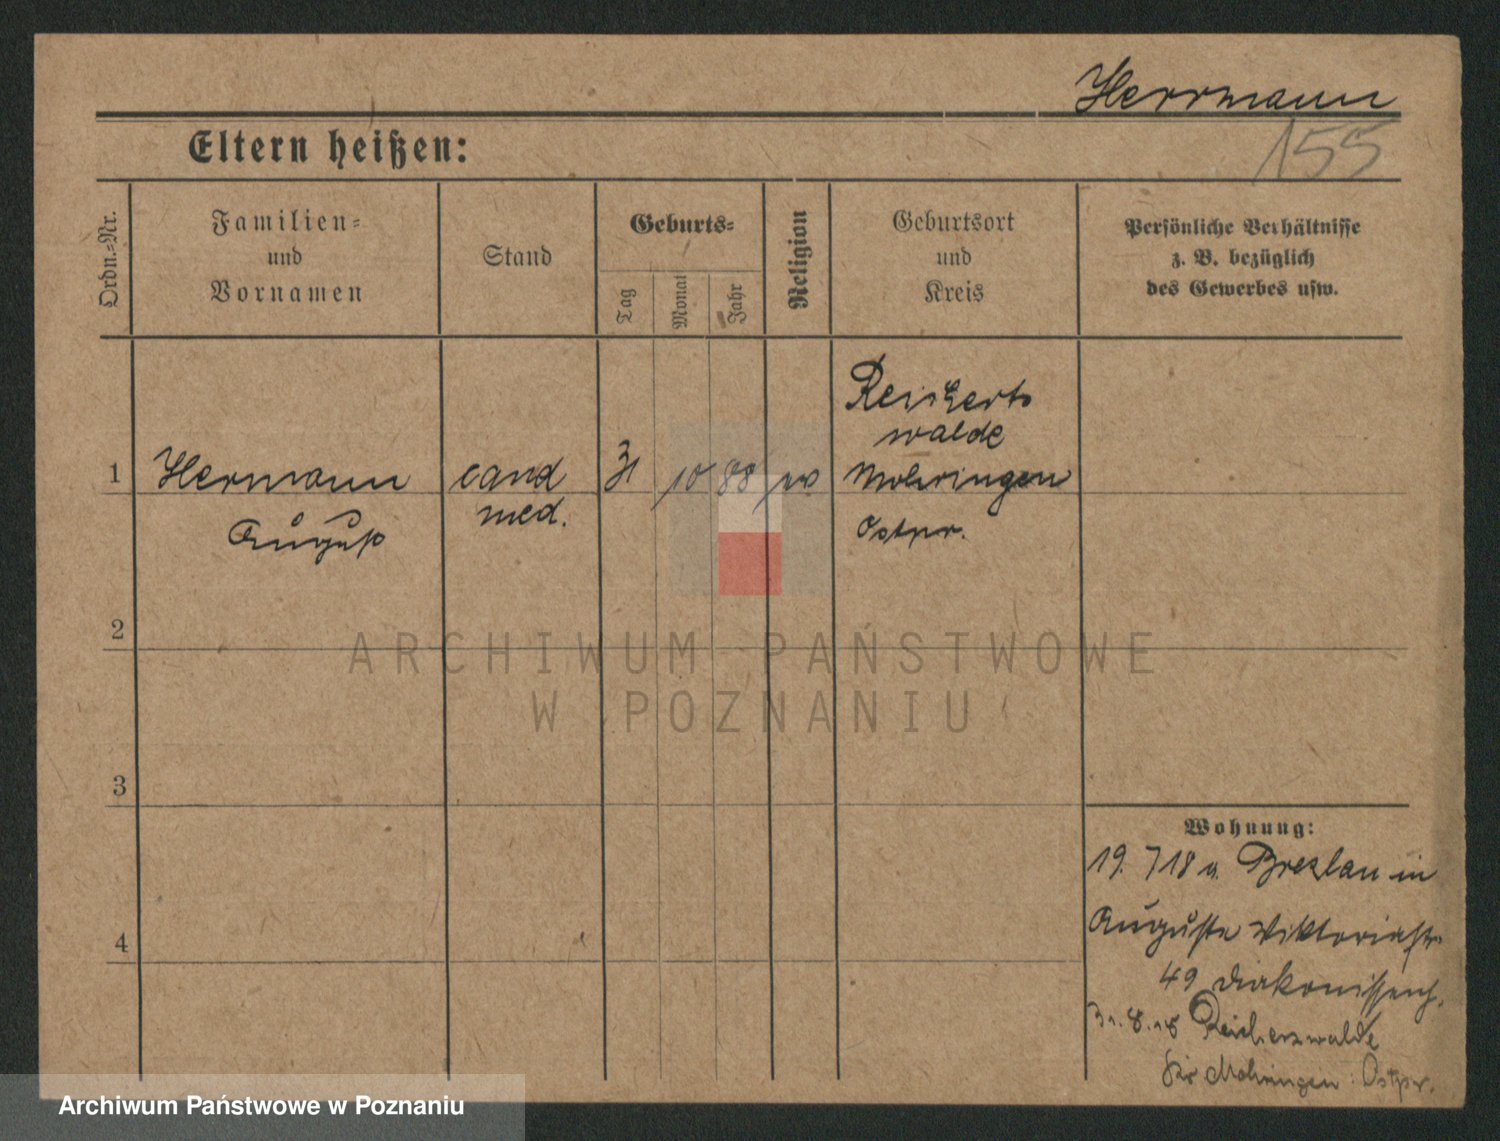 Herrmann
155
Eltern heißen:
Ordn.=Nr.
Familien=
und
Vornamen
Stand
Geburts=
Tag
Monat
Jahr
Religion
Geburtsort
und
Kreis
Persönliche Verhältnisse
z. B. bezüglich
des Gewerbes usw.
1
Herrmann
August
cand
med.
31
10
88
Reicherts
walde
Mohringen
Ostpr.
2
3
4
Wohnung:
19. 7 18 a. Breslau in
Auguste Viktoriastr.
49 Diakonissenh.
31.8.18 Reicherswalde
Kr Mohringen Ostpr.
ARCHIWUM PAŃSTWOWE
W POZNANIU
Archiwum Państwowe w Poznaniu